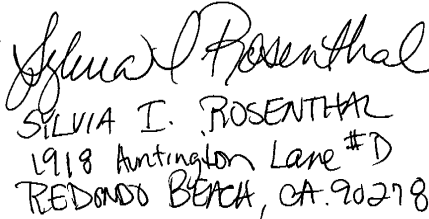 Sylvia I Rosenthal
SILVIA I. ROSENTHAL
1918 Huntington Lane #D
REDONDO BEACH, CA. 90278